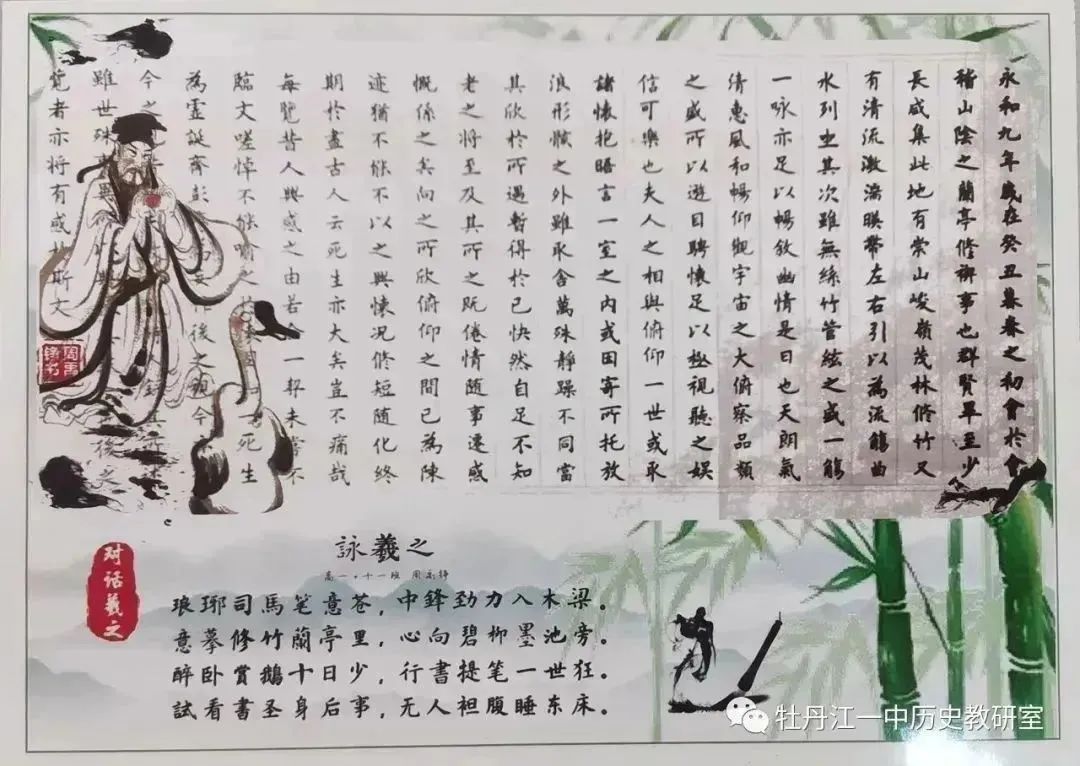 永和九年歲在癸丑暮春之初會於會
稽山陰之蘭亭修禊事也群賢畢至少
長咸集此地有崇山峻嶺茂林修竹又
有清流激湍映帶左右引以為流觴曲
水列坐其次雖無絲竹管絃之盛一觴
一咏亦足以暢敘幽情是日也天朗氣
清惠風和暢仰觀宇宙之大俯察品類
之盛所以遊目騁懷足以極視聽之娛
信可樂也夫人之相與俯仰一世或取
諸懷抱晤言一室之內或因寄所托放
浪形骸之外雖取舍萬殊靜躁不同當
其欣於所遇暫得於己快然自足不知
老之將至及其所之既倦情隨事遷感
慨係之矣向之所欣俯仰之間已為陳
迹猶不能不以之興懷况修短隨化終
期於盡古人云死生亦大矣豈不痛哉
每覽昔人興感之由若合一契未嘗不
臨文嗟悼不能喻之於懷固 一死生
為靈誕齊彭 作後之視今
今之 其
雖世殊 異 後之
覽者亦將有感於斯文
对话羲之
詠羲之
高一·十一班 周禹锋
琅琊司馬笔意苍，中鋒劲力入木梁。
意摹修竹蘭亭里，心向碧柳墨池旁。
醉卧赏鵝十日少，行書提笔一世狂。
試看書圣身后事，无人袒腹睡东床。
牡丹江一中历史教研室